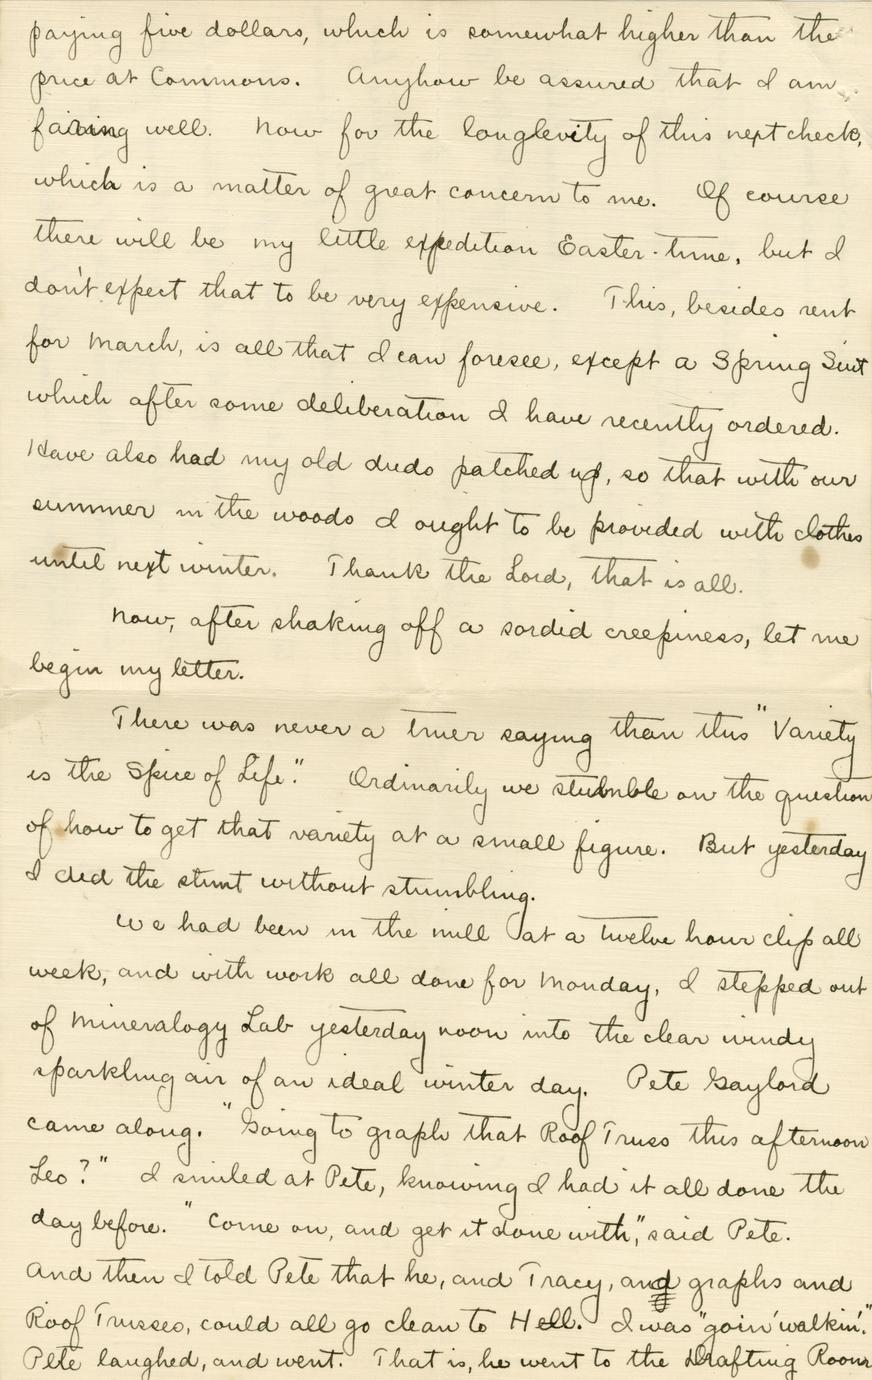 paying five dollars, which is somewhat higher than the
price at Commons. Anyhow be assured that I am
faring well. Now for the longlevity of this next check,
which is a matter of great concern to me. Of course
there will be my little expedition Easter-time, but I
don't expect that to be very expensive. This, besides rent
for March, is all that I can foresee, except a Spring Suit
which after some deliberation I have recently ordered.
Have also had my old duds patched up, so that with our
summer in the woods I ought to be provided with clothes
until next winter. Thank the Lord, that is all.
Now, after shaking off a sordid creepiness, let me
begin my letter.
There was never a truer saying than this "Variety
is the Spice of Life". Ordinarily we stumble on the question
of how to get that variety at a small figure. But yesterday
I did the stunt without stumbling.
We had been in the mill at a twelve hour clip all
week, and with work all done for Monday, I stepped out
of Mineralogy Lab yesterday noon into the clear windy
sparkling air of an ideal winter day. Pete Gaylord
came along. "Going to graph that Roof Truss this afternoon
Leo?" I smiled at Pete, knowing I had it all done the
day before. "Come on, and get it done with," said Pete.
And then I told Pete that he, and Tracy, and graphs and
Roof Trusses, could all go clean to Hell. I was "goin' walkin'."
Pete laughed, and went. That is, he went to the Drafting Room